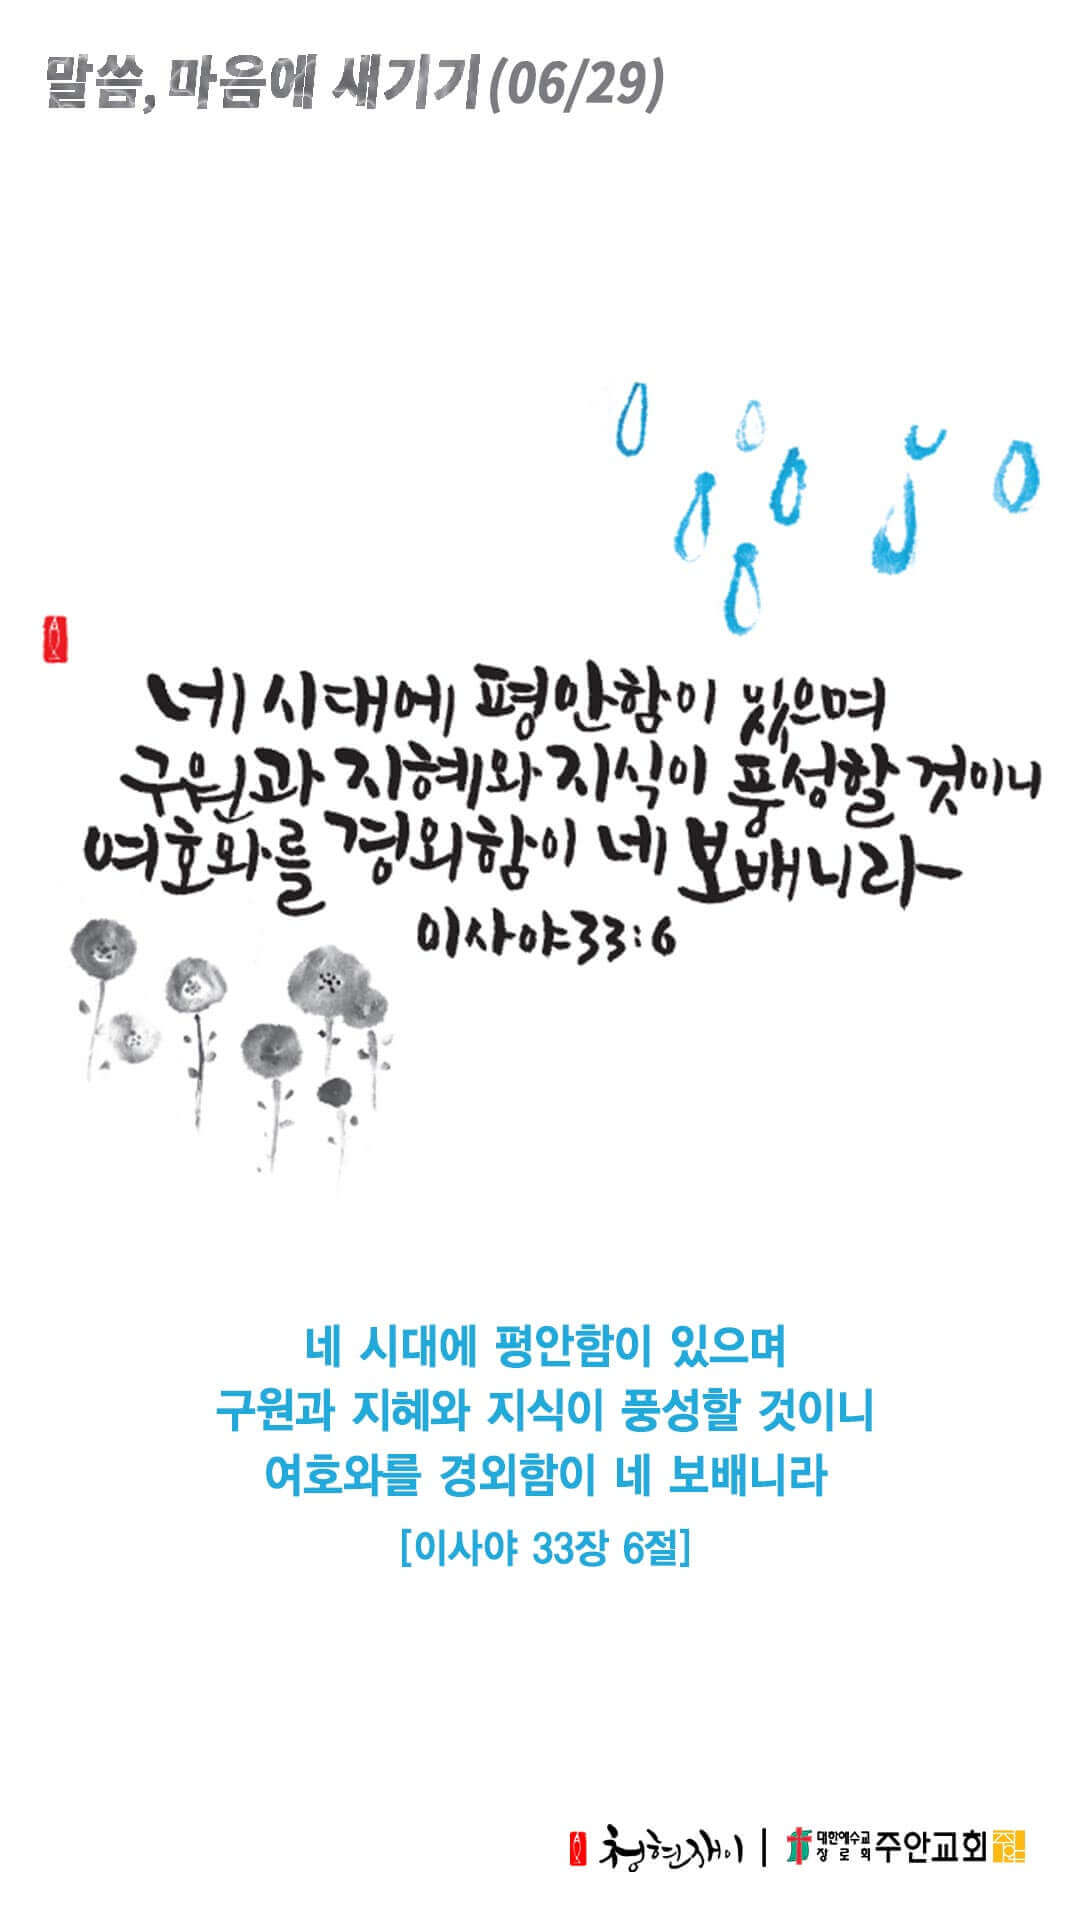 말씀, 마음에 새기기(06/29)
네 시대에 평안함이 있으며
구원과 지혜와 지식이 풍성할 것이니
여호와를 경외함이 네 보배니라
이사야33:6
네 시대에 평안함이 있으며
구원과 지혜와 지식이 풍성할 것이니
여호와를 경외함이 네 보배니라
[이사야 33장 6절]
청현재이
대한예수교
장로회
주안교회